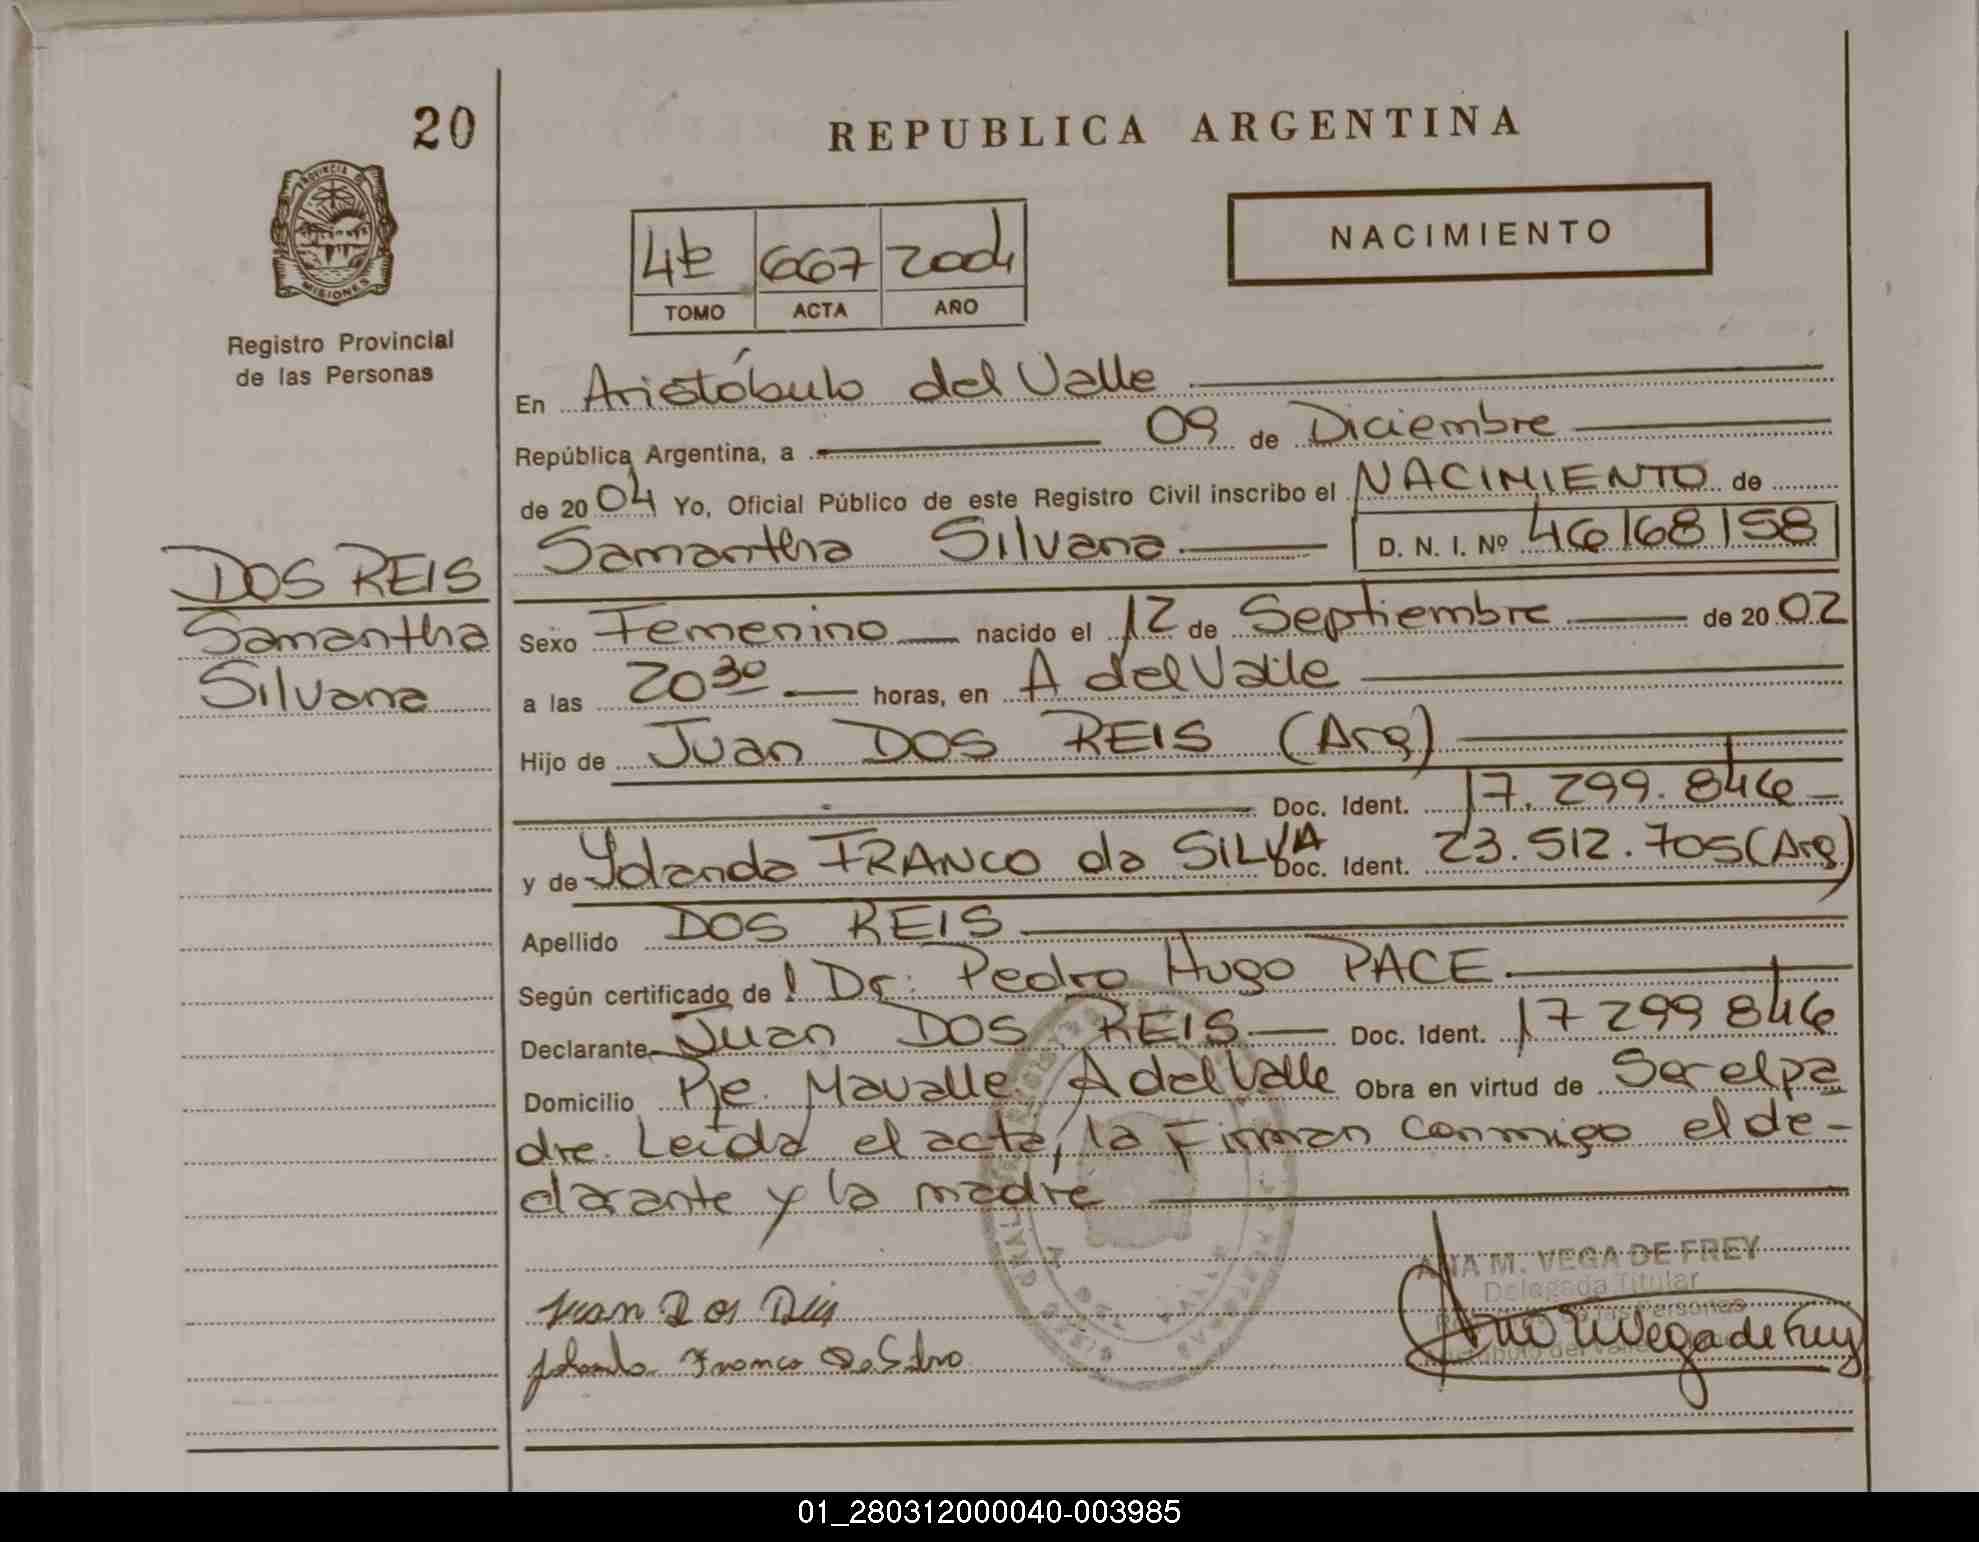 20
REPUBLICA ARGENTINA
NACIMIENTO
PROVINCIA DE
MISIONES
Registro Provincial
de las Personas
667 2004
TOMO ACTA AÑO
En Aristóbulo del Valle
República Argentina, a 09 de Diciembre
de 2004 Yo, Oficial Público de este Registro Civil inscribo el NACIMIENTO de
Samantha Silvana D. N. I. Nº 46168158
DOS REIS
Samantha
Silvana
Sexo Femenino nacido el 12 de Septiembre de 2002
a las 20 30 horas, en A del Valle
Hijo de Juan DOS REIS (Arg)
Doc. Ident. 17.299.846
y de Yolanda FRANCO da SILVA Doc. Ident. 23.512.705 (Arg)
Apellido DOS REIS
Según certificado de Dr. Pedro Hugo PACE
Declarante Juan DOS REIS Doc. Ident. 17 299 846
Domicilio Pje. Mavalle A del Valle Obra en virtud de Ser el pa
dre. Leída el acta, la Firman conmigo el de-
clarante y la madre
ANA M. VEGA DE FREY
Delegada Titular
de las Personas
Aristóbulo del Valle
Juan Dos Reis
Yolanda Franco Da Silva
Ana M Vega de Frey
01_280312000040-003985